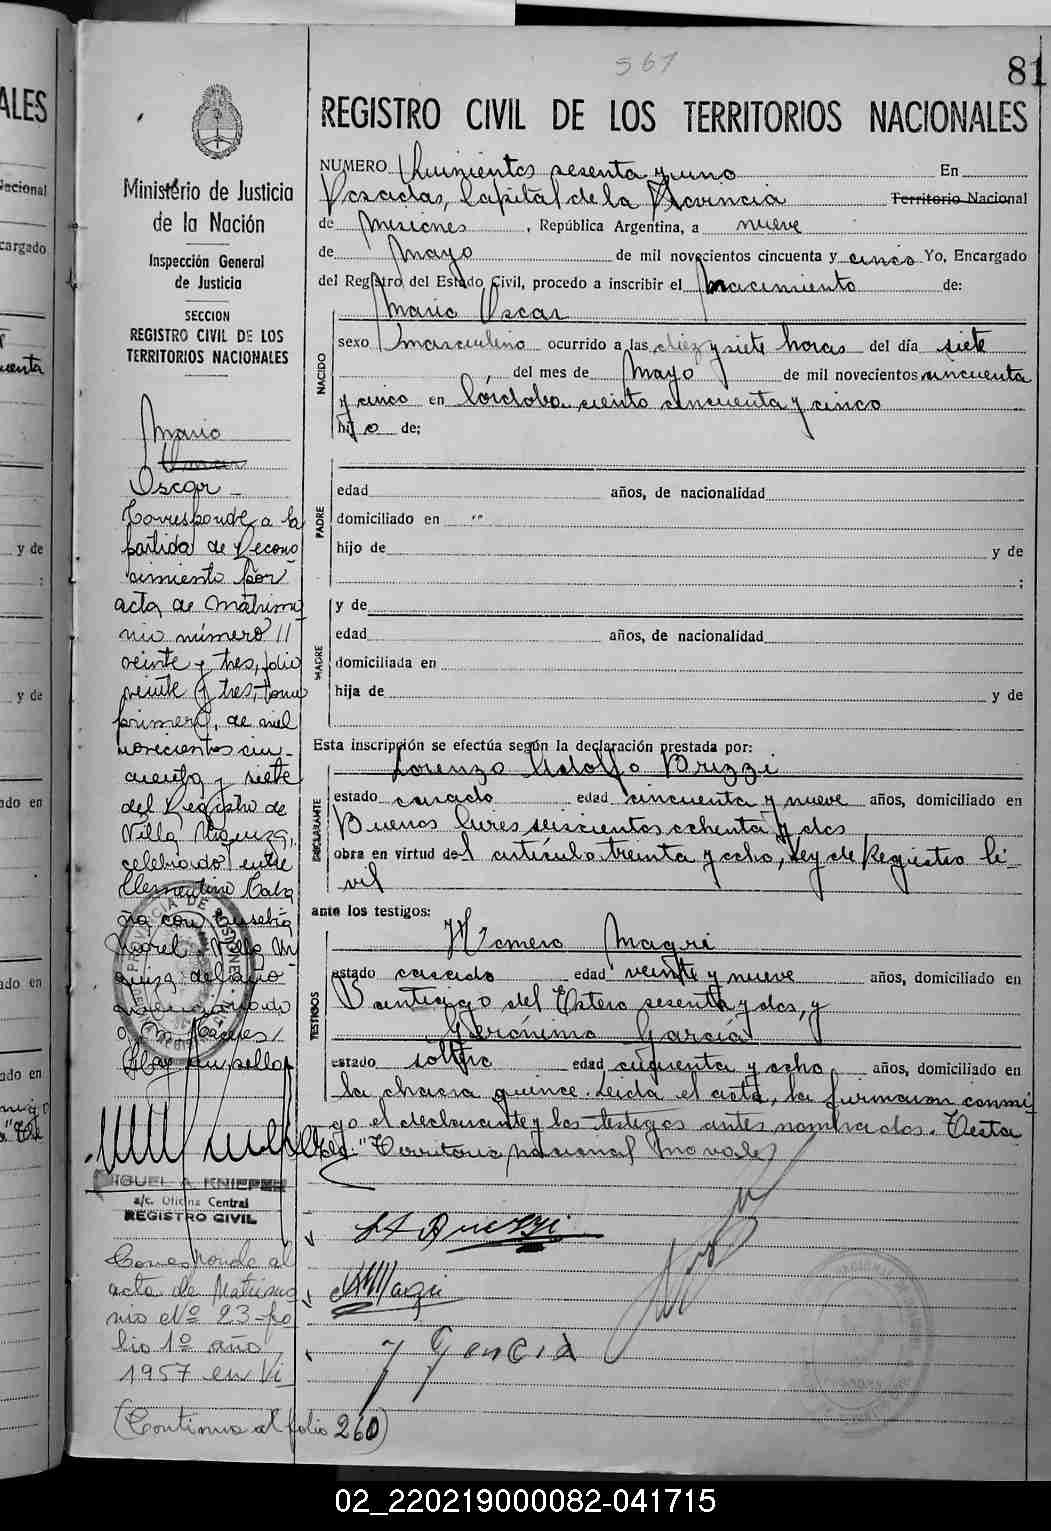 ALES
Nacional
cargado
y de
y de
ado en
ado en
ado en
561
81
Ministerio de Justicia
de la Nación
Inspección General
de Justicia
SECCION
REGISTRO CIVIL DE LOS
TERRITORIOS NACIONALES
Mario
Omar
Oscar
Corresponde a la
partida de Recono
cimiento por
acta de Matrimo
nio número
veinte y tres, folio
veinte y tres, tomo
primero, de mil
novecientos cin-
cuenta y siete
del Registro de
Villa Urquiza,
celebrado entre
Clementino
con Eusebia
Villa Ur
quiza del año
mencionado
Hay un sello
MIGUEL A. KNIEPEN
a/c. Oficina Central
REGISTRO CIVIL
Corresponde al
acta de Matrimo
nio Nº 23-fo
lio 1º año
1957 en Vi
(Continua al folio 260)
REGISTRO CIVIL DE LOS TERRITORIOS NACIONALES
NUMERO Quinientos sesenta y uno En
Posadas, Capital de la Provincia Territorio Nacional
de Misiones, República Argentina, a nueve
de Mayo de mil novecientos cincuenta y cinco Yo, Encargado
del Registro del Estado Civil, procedo a inscribir el Nacimiento de:
Mario Oscar
NACIDO
sexo masculino ocurrido a las diez y siete horas del día siete
del mes de Mayo de mil novecientos cincuenta
y cinco en Córdoba ciento cincuenta y cinco
hijo de:
PADRE
edad años, de nacionalidad
domiciliado en
hijo de y de
:
MADRE
y de
edad años, de nacionalidad
domiciliada en
hija de y de
Esta inscripción se efectúa según la declaración prestada por:
Lorenzo Adolfo Brizzi
DECLARANTE
estado casado edad cincuenta y nueve años, domiciliado en
Buenos Aires seiscientos ochenta y dos
obra en virtud del artículo treinta y ocho, Ley de Registro Ci-
vil
ante los testigos:
TESTIGOS
Homero Magri
estado casado edad veinte y nueve años, domiciliado en
Santiago del Estero sesenta y dos, y
Gerónimo García
estado soltero edad cincuenta y ocho años, domiciliado en
la chacra quince. Leida el acta, la firmaron conmi-
go el declarante y los testigos antes nombrados. Testa
do: "Territorio nacional" No vale
L A Brizzi
HMagri
J Garcia
02_220219000082-041715